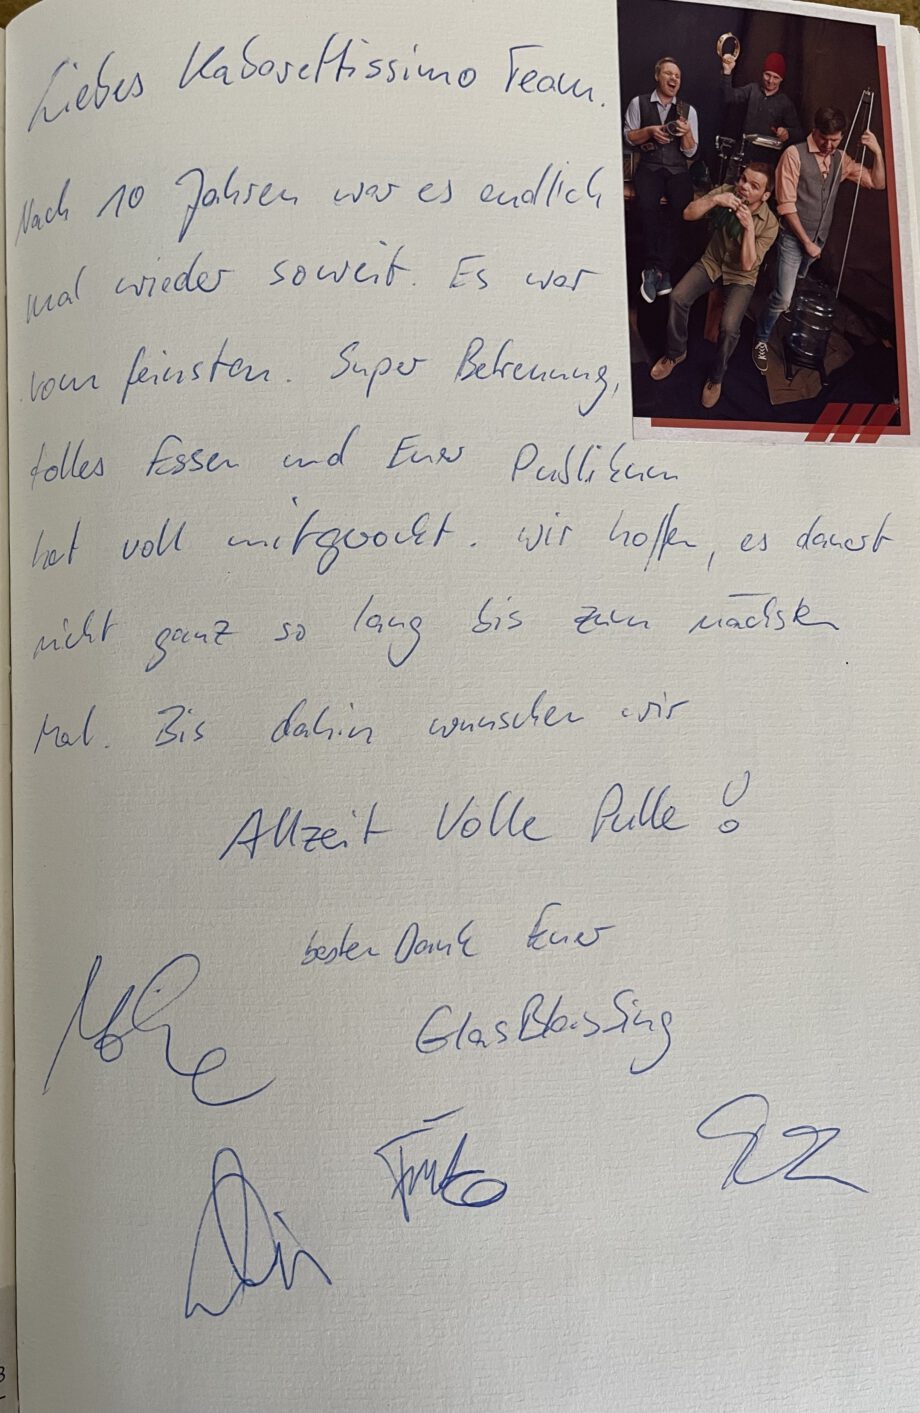 Liebes Kabarettissimo Team.
Nach 10 Jahren war es endlich
mal wieder soweit. Es war
vom feinsten. Super Betreuung,
tolles Essen und Euer Publikum
hat voll mitgerockt. wir hoffen, es dauert
nicht ganz so lang bis zum nächsten
Mal. Bis dahin wünschen wir
Allzeit Volle Pulle!
besten Dank Euer
GlasBlasSing